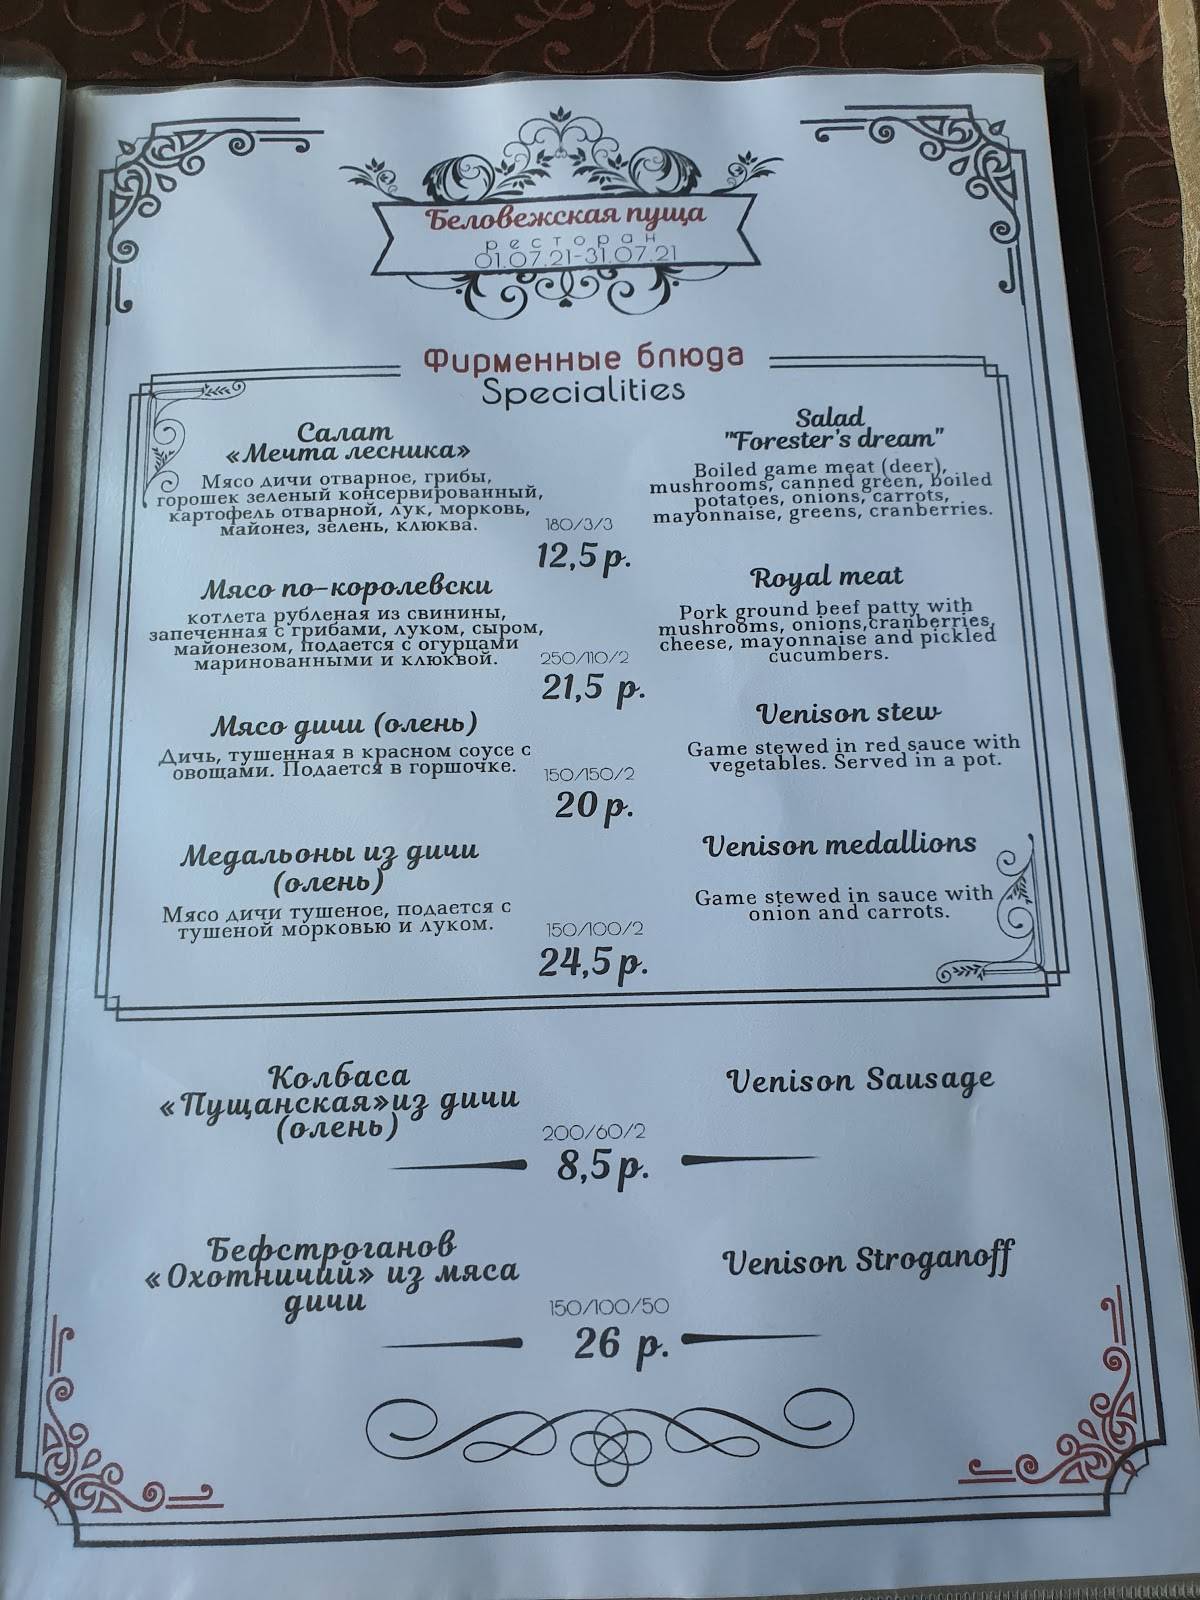 Беловежская пуща
ресторан
01.07.21-31.07.21
Фирменные блюда
Specialities
Салат
«Мечта лесника»
Мясо дичи отварное, грибы,
горошек зеленый консервированный,
картофель отварной, лук, морковь,
майонез, зелень, клюква.
180/3/3
12,5 р.
Salad
"Forester's dream"
Boiled game meat (deer),
mushrooms, canned green, boiled
potatoes, onions, carrots,
mayonnaise, greens, cranberries.
Мясо по-королевски
котлета рубленая из свинины,
запеченная с грибами, луком, сыром,
майонезом, подается с огурцами
маринованными и клюквой.
250/110/2
21,5 р.
Royal meat
Pork ground beef patty with
mushrooms, onions,cranberries,
cheese, mayonnaise and pickled
cucumbers.
Мясо дичи (олень)
Дичь, тушенная в красном соусе с
овощами. Подается в горшочке.
150/150/2
20 р.
Venison stew
Game stewed in red sauce with
vegetables. Served in a pot.
Медальоны из дичи
(олень)
Мясо дичи тушеное, подается с
тушеной морковью и луком.
150/100/2
24,5 р.
Venison medallions
Game stewed in sauce with
onion and carrots.
Колбаса
«Пущанская»из дичи
(олень)
200/60/2
8,5 р.
Venison Sausage
Бефстроганов
«Охотничий» из мяса
дичи
150/100/50
26 р.
Venison Stroganoff